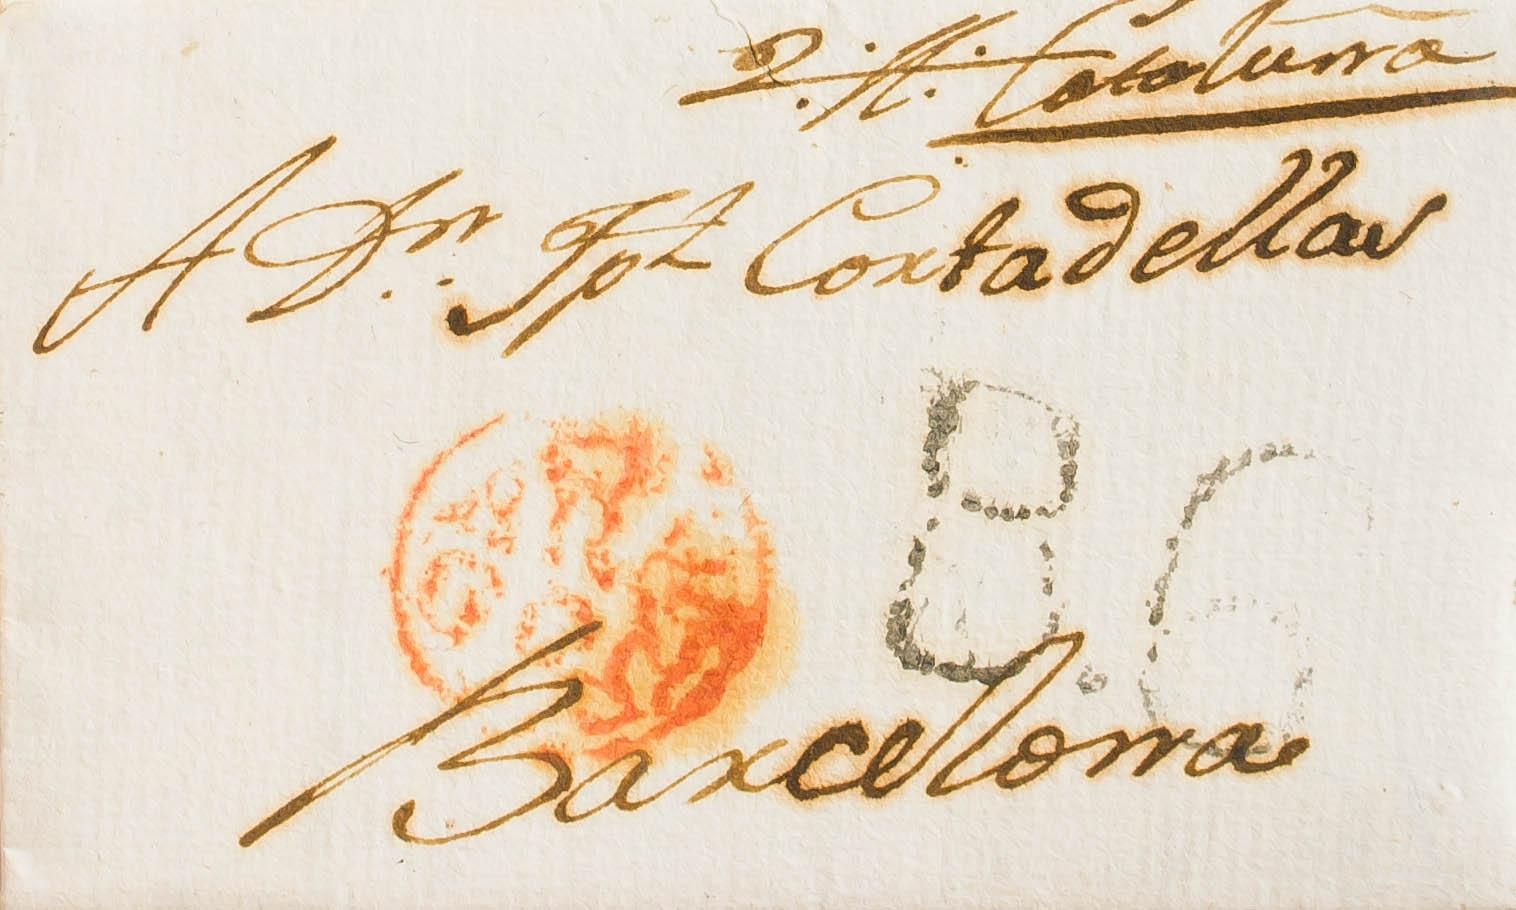 Cataluña
A Dn. Jph Cortadellas
B.G
Barcelona